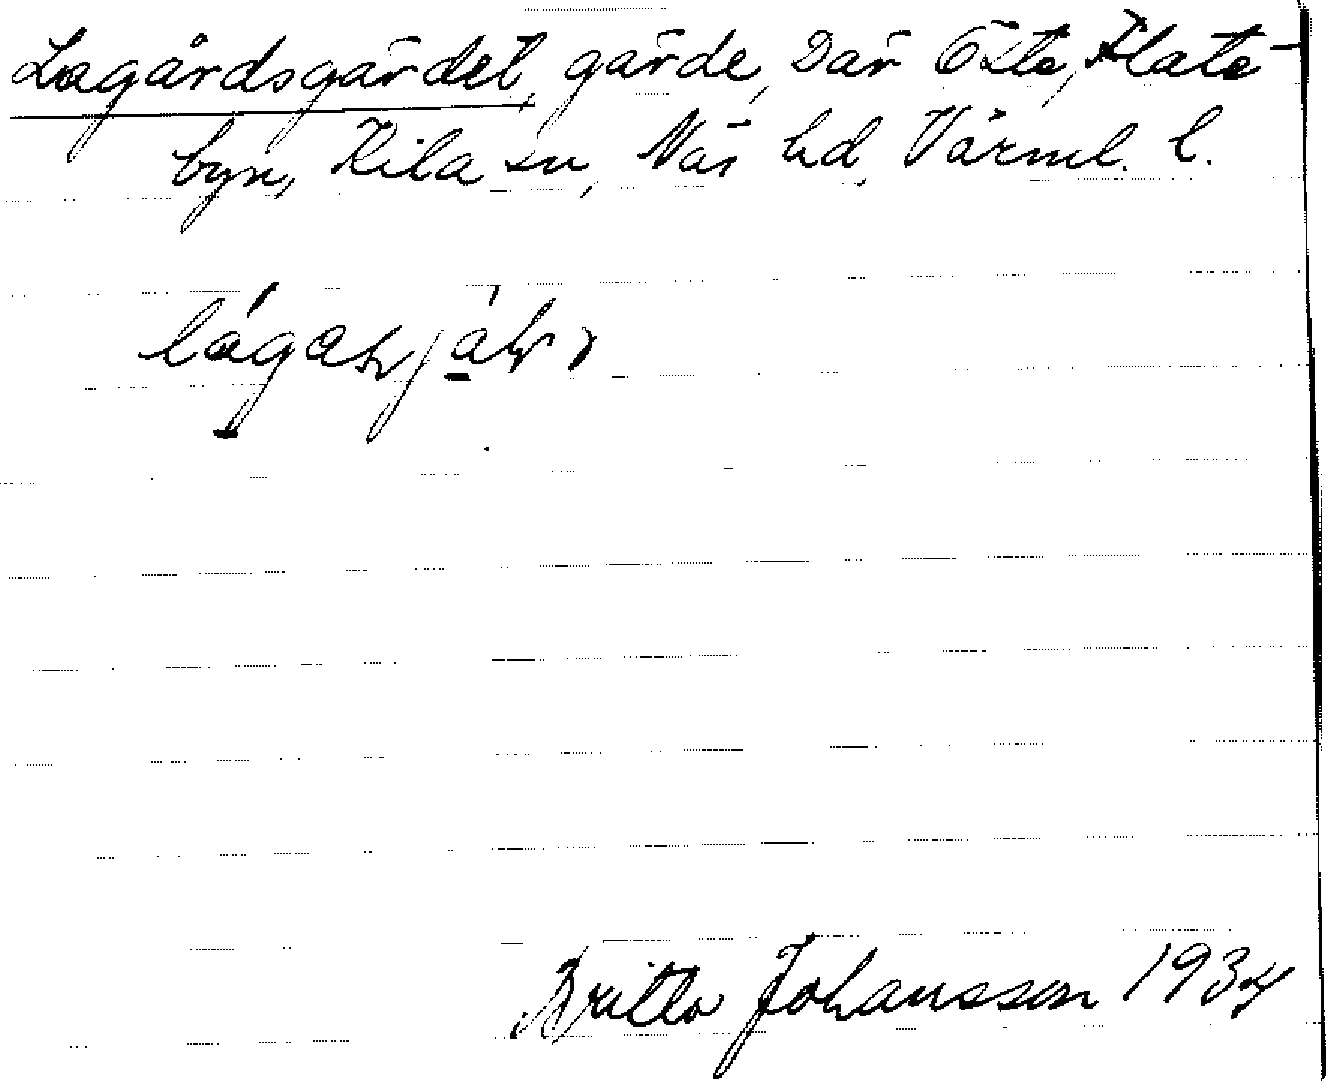 Lagårdsgärdet, gärde, där Öste, Flate-
byn, Kila sn, Näs hd, Värml. l.
Britta Johansson 1934